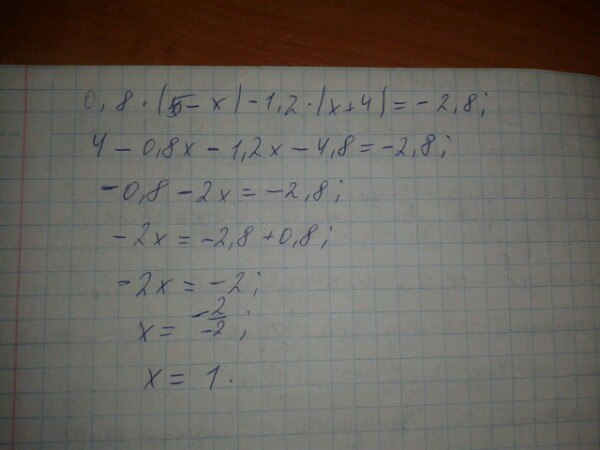 0,8·(5-x)-1,2·(x+4)=-2,8;
4-0,8x-1,2x-4,8=-2,8;
-0,8-2x=-2,8;
-2x=-2,8+0,8;
-2x=-2;
x=-2/-2;
x=1.